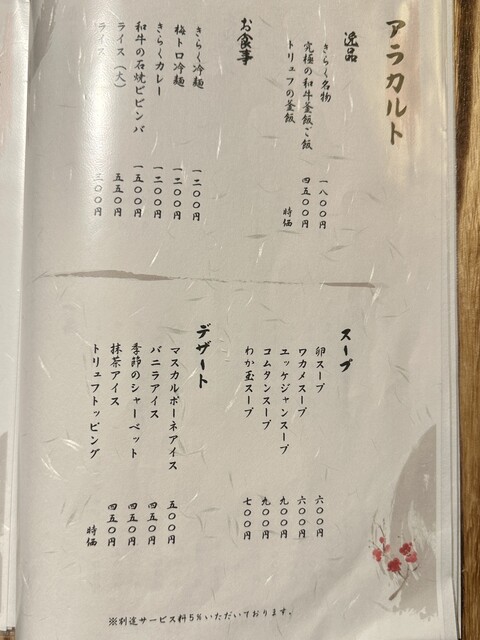 アラカルト
逸品
きらく名物 一八〇〇円
究極の和牛釜飯ご飯 四五〇〇円
トリュフの釜飯 時価
お食事
きらく冷麺 一二〇〇円
梅トロ冷麺 一二〇〇円
きらくカレー 一二〇〇円
和牛の石焼ビビンバ 一五〇〇円
ライス（大） 五五〇円
ライス 三〇〇円
スープ
卵スープ 六〇〇円
ワカメスープ 六〇〇円
ユッケジャンスープ 九〇〇円
コムタンスープ 九〇〇円
わか玉スープ 七〇〇円
デザート
マスカルポーネアイス 五〇〇円
バニラアイス 四五〇円
季節のシャーベット 四五〇円
抹茶アイス 四五〇円
トリュフトッピング 時価
※別途サービス料5%いただいております。